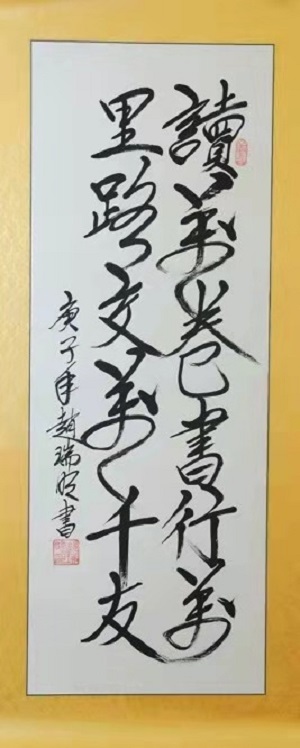 讀萬卷書行萬
里路交萬千友
庚子年趙瑞書